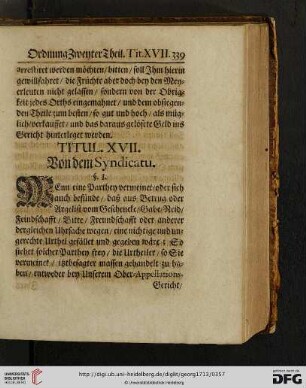 Ordnung Zweyter Theil. Tit. XVII. 339
arrestiret werden möchten/ bitten/ soll Ihm hierin
gewillfahret/ die Früchte aber doch bey den Mey-
erleuten nicht gelassen/ sondern von der Obrig-
keit jedes Orths eingemahnet/ und dem obsiegen-
den Theile zum besten/ so gut und hoch/ als müg-
lich/ verkauffet/ und das daraus gelösete Geld ins
Gericht hinterleget werden.
TITUL. XVII.
Von dem Syndicatu.
§. 1.
Wenn eine Parthey vermeinet/ oder sich
auch befünde/ daß aus Betrug oder
Argelist/ vom Geschencke/ Gabe/ Neid/
Feindschafft/ Bitte/ Freundschafft oder anderer
dergleichen Uhrsache wegen/ eine nichtige und un-
gerechte Urthel gefället und gegeben wäre; So
stehet solcher Parthey frey/ die Urtheiler/ so Sie
vermeinet/ itzbesagter massen gehandelt zu ha-
ben/ entweder bey Unserem Ober-Appellations-
Gericht/
UNIVERSITÄTS-
BIBLIOTHEK
HEIDELBERG
http://digi.ub.uni-heidelberg.de/diglit/georg1713/0357
© Universitätsbibliothek Heidelberg
gefördert durch die
DFG